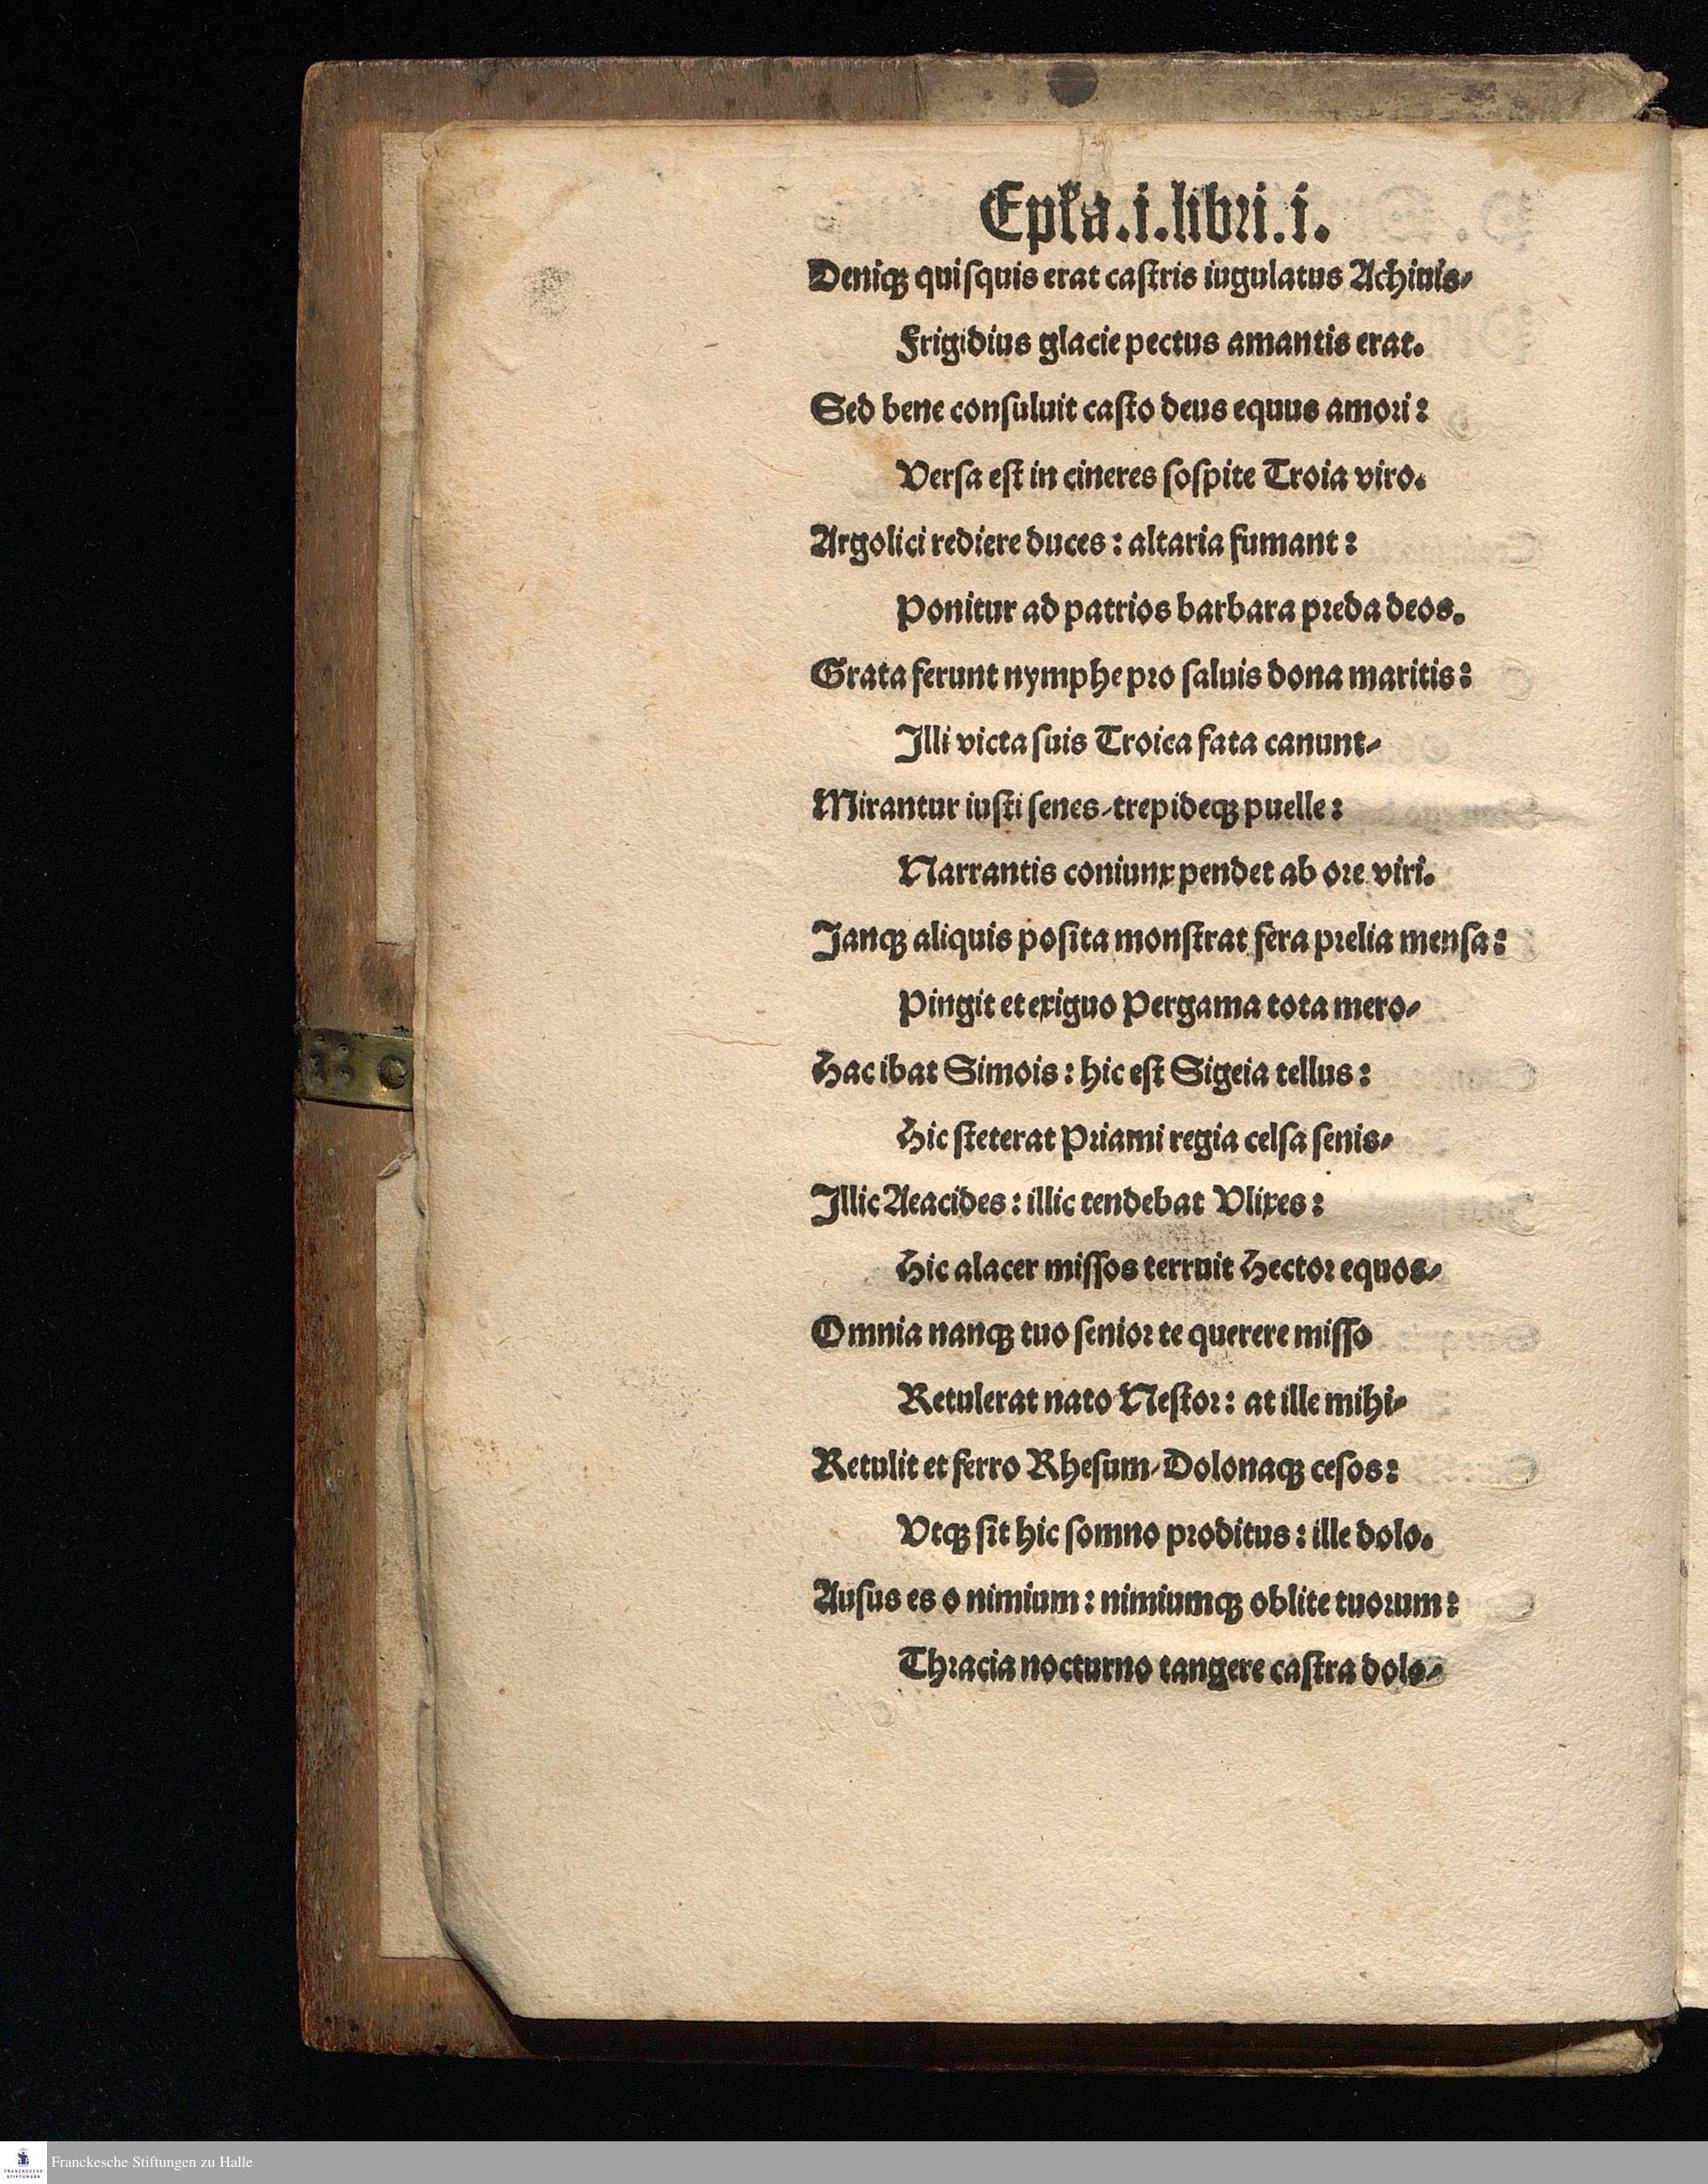 Epła.i.libri.i.
Deniqꝫ quiſquis erat caſtris iugulatus Achiuis⸗
Frigidius glacie pectus amantis erat.
Sed bene conſuluit caſto deus equus amori:
Verſa eſt in cineres ſoſpite Troia viro.
Argolici rediere duces: altaria fumant:
Ponitur ad patrios barbara preda deos.
Grata ferunt nymphe pro ſaluis dona maritis:
Illi victa ſuis Troica fata canunt⸗
Mirantur iuſti ſenes⸗trepideqꝫ puelle:
Narrantis coniunx pendet ab ore viri.
Janqꝫ aliquis poſita monſtrat fera prelia menſa:
Pingit et exiguo Pergama tota mero⸗
Hac ibat Simois: hic eſt Sigeia tellus:
Hic ſteterat Priami regia celſa ſenis⸗
Illic Aeacides: illic tendebat Vlixes:
Hic alacer miſſos terruit Hector equos⸗
Omnia nanqꝫ tuo ſenior te querere miſſo
Retulerat nato Neſtor: at ille mihi⸗
Retulit et ferro Rheſum⸗Dolonaqꝫ ceſos:
Vtqꝫ ſit hic ſomno proditus: ille dolo.
Auſus es o nimium: nimiumqꝫ oblite tuorum:
Thracia nocturno tangere caſtra dolo⸗
FRANCKESCHE
STIFTUNGEN
Franckesche Stiftungen zu Halle